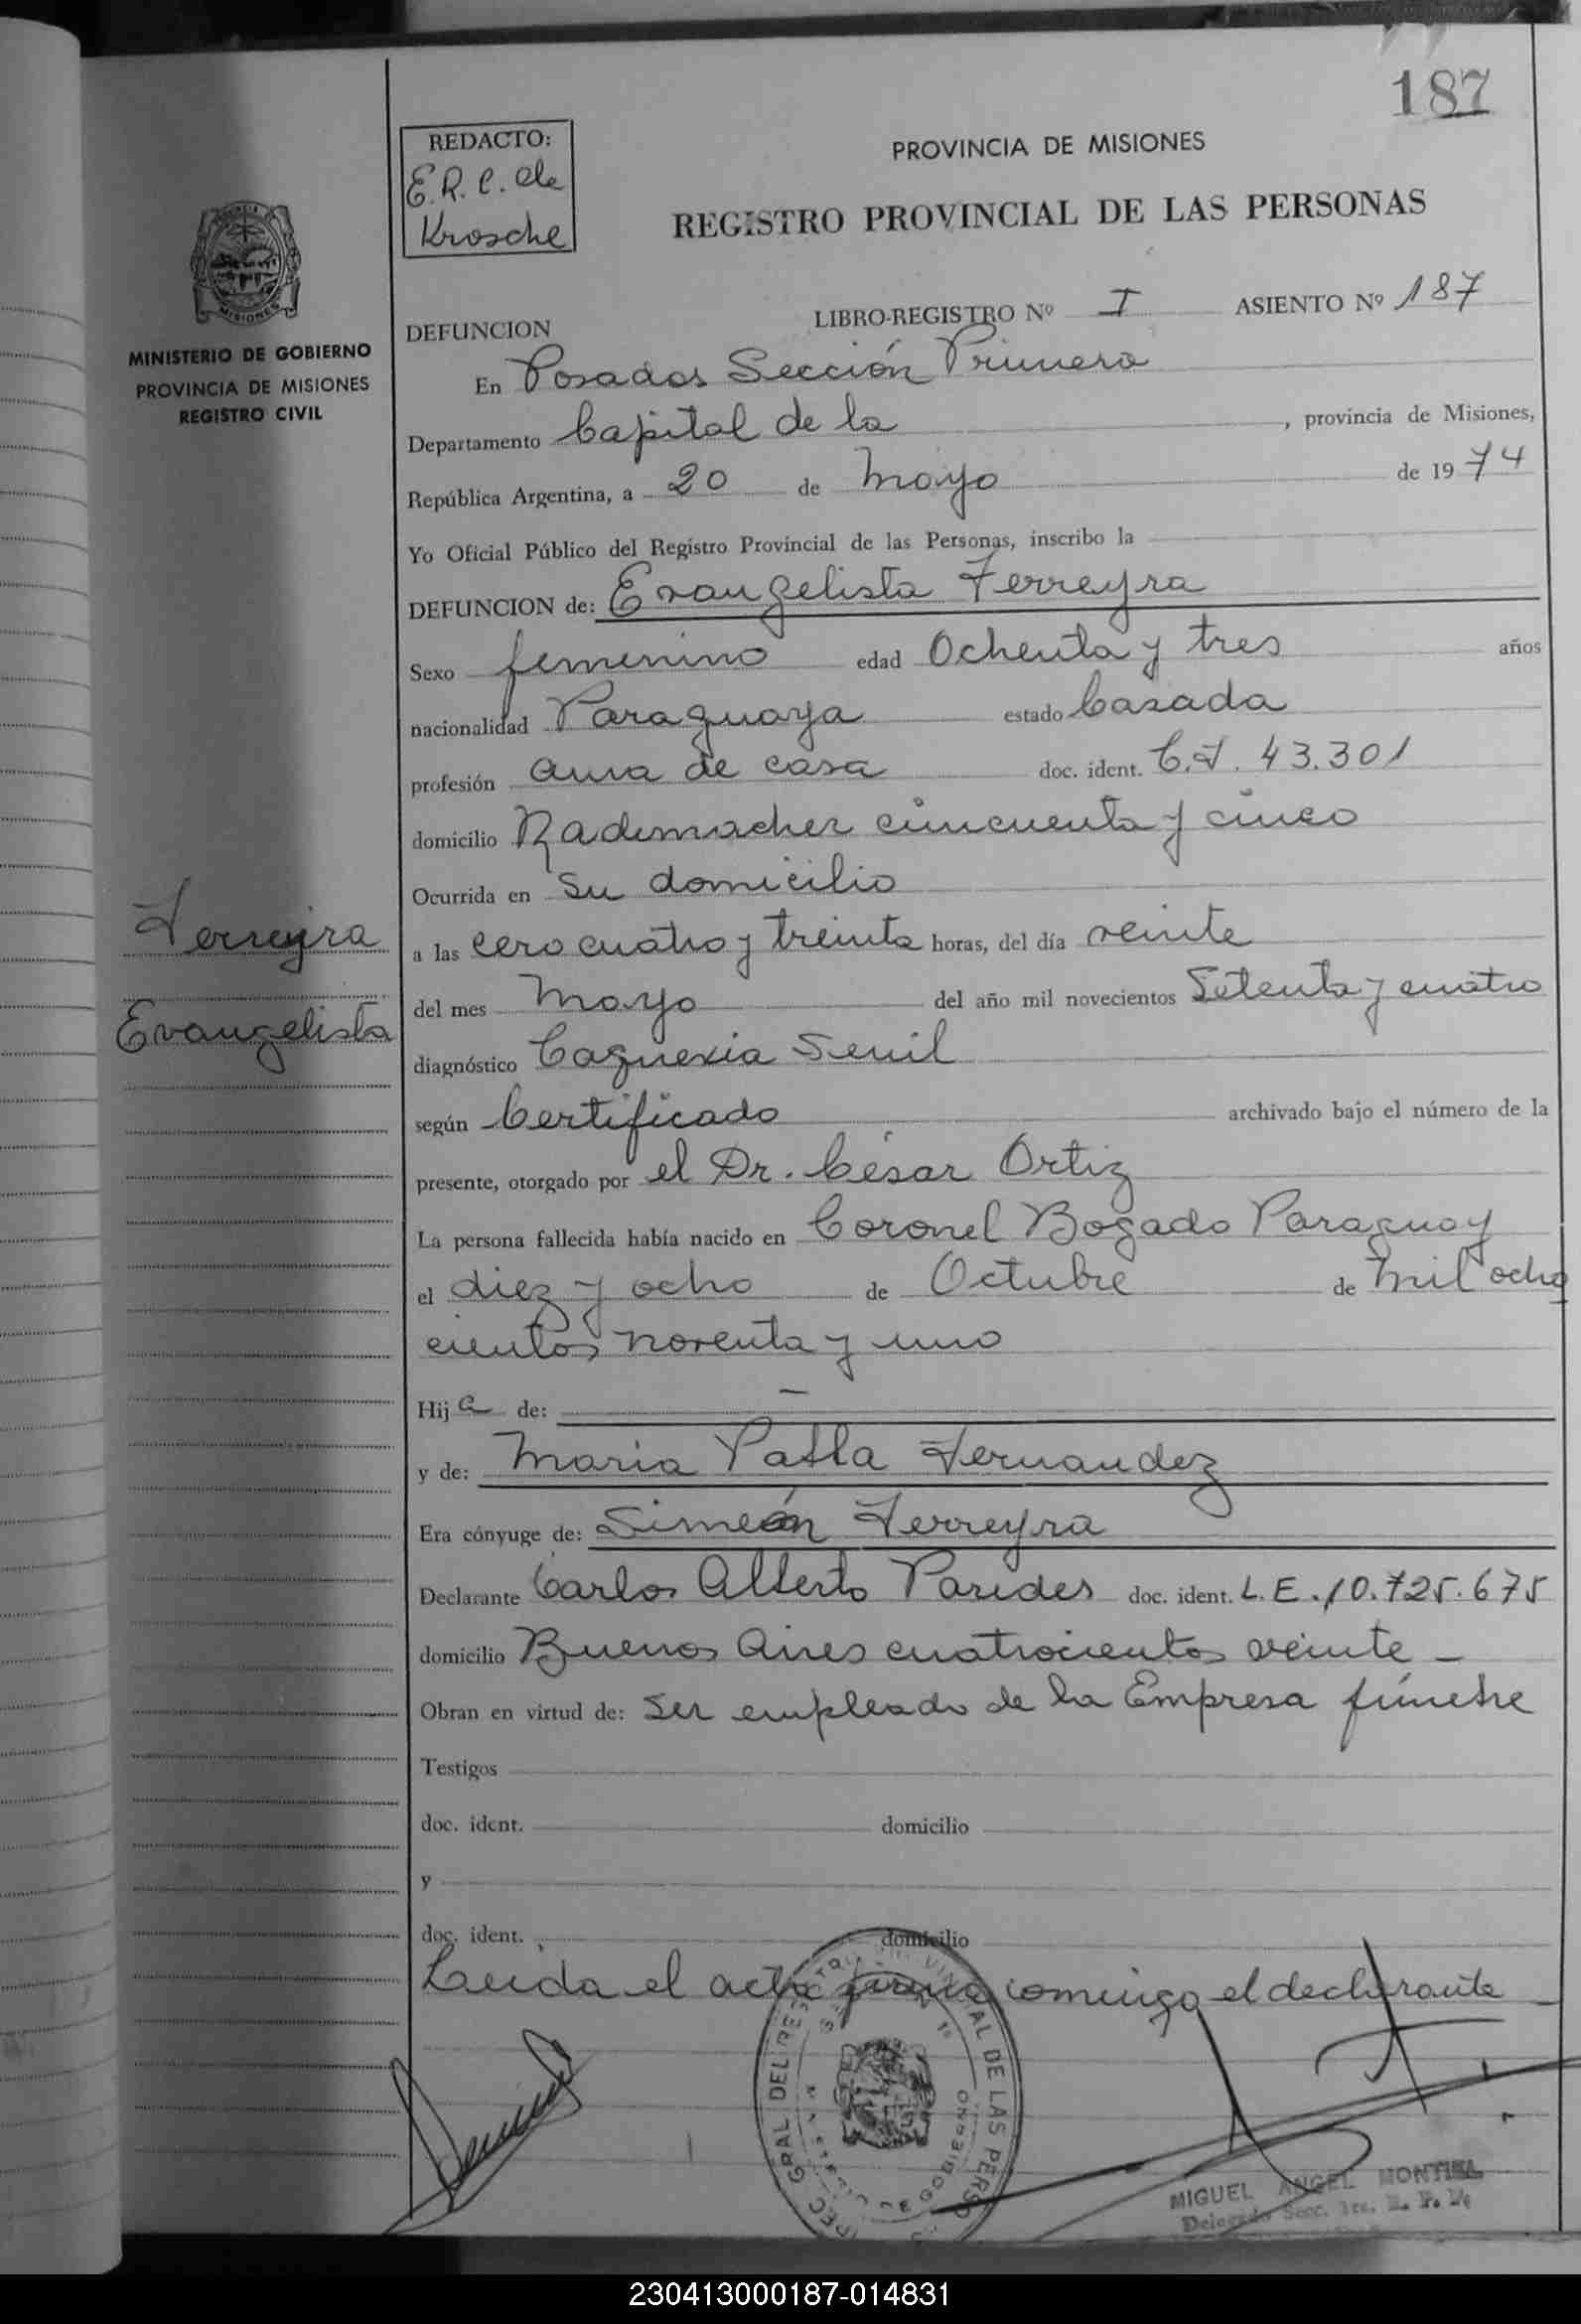 187
REDACTO:
E.R.C. de
Krosche
PROVINCIA DE MISIONES
REGISTRO PROVINCIAL DE LAS PERSONAS
MISIONES
MINISTERIO DE GOBIERNO
PROVINCIA DE MISIONES
REGISTRO CIVIL
DEFUNCION LIBRO-REGISTRO Nº I ASIENTO Nº 187
En Posadas Sección Primera
Departamento Capital de la , provincia de Misiones,
República Argentina, a 20 de Mayo de 1974
Yo Oficial Público del Registro Provincial de las Personas, inscribo la
DEFUNCION de: Evangelista Ferreyra
Sexo femenino edad Ochenta y tres años
nacionalidad Paraguaya estado Casada
profesión ama de casa doc. ident. C.I. 43.301
domicilio Rademacher cincuenta y cinco
Ocurrida en su domicilio
Ferreyra
a las cero cuatro y treinta horas, del día veinte
del mes Mayo del año mil novecientos Setenta y cuatro
Evangelista
diagnóstico Caquexia Senil
según Certificado archivado bajo el número de la
presente, otorgado por el Dr. César Ortiz
La persona fallecida había nacido en Coronel Bogado Paraguay
el diez y ocho de Octubre de mil ocho
cientos noventa y uno
Hija de: —
y de: Maria Fernandez
Era cónyuge de: Simeón Ferreyra
Declarante Carlos Alberto Paredes doc. ident. L.E. 10.725.675
domicilio Buenos Aires cuatrocientos veinte –
Obran en virtud de: Ser empleado de la Empresa fúnebre
Testigos
doc. ident. domicilio
y
doc. ident. domicilio
Leida el acta firma conmigo el declarante
GRAL DEL DE LAS PERS
GOBIERNO
MIGUEL ANGEL MONTIEL
Delegado Secc. 1ra. R. P. P.
230413000187-014831